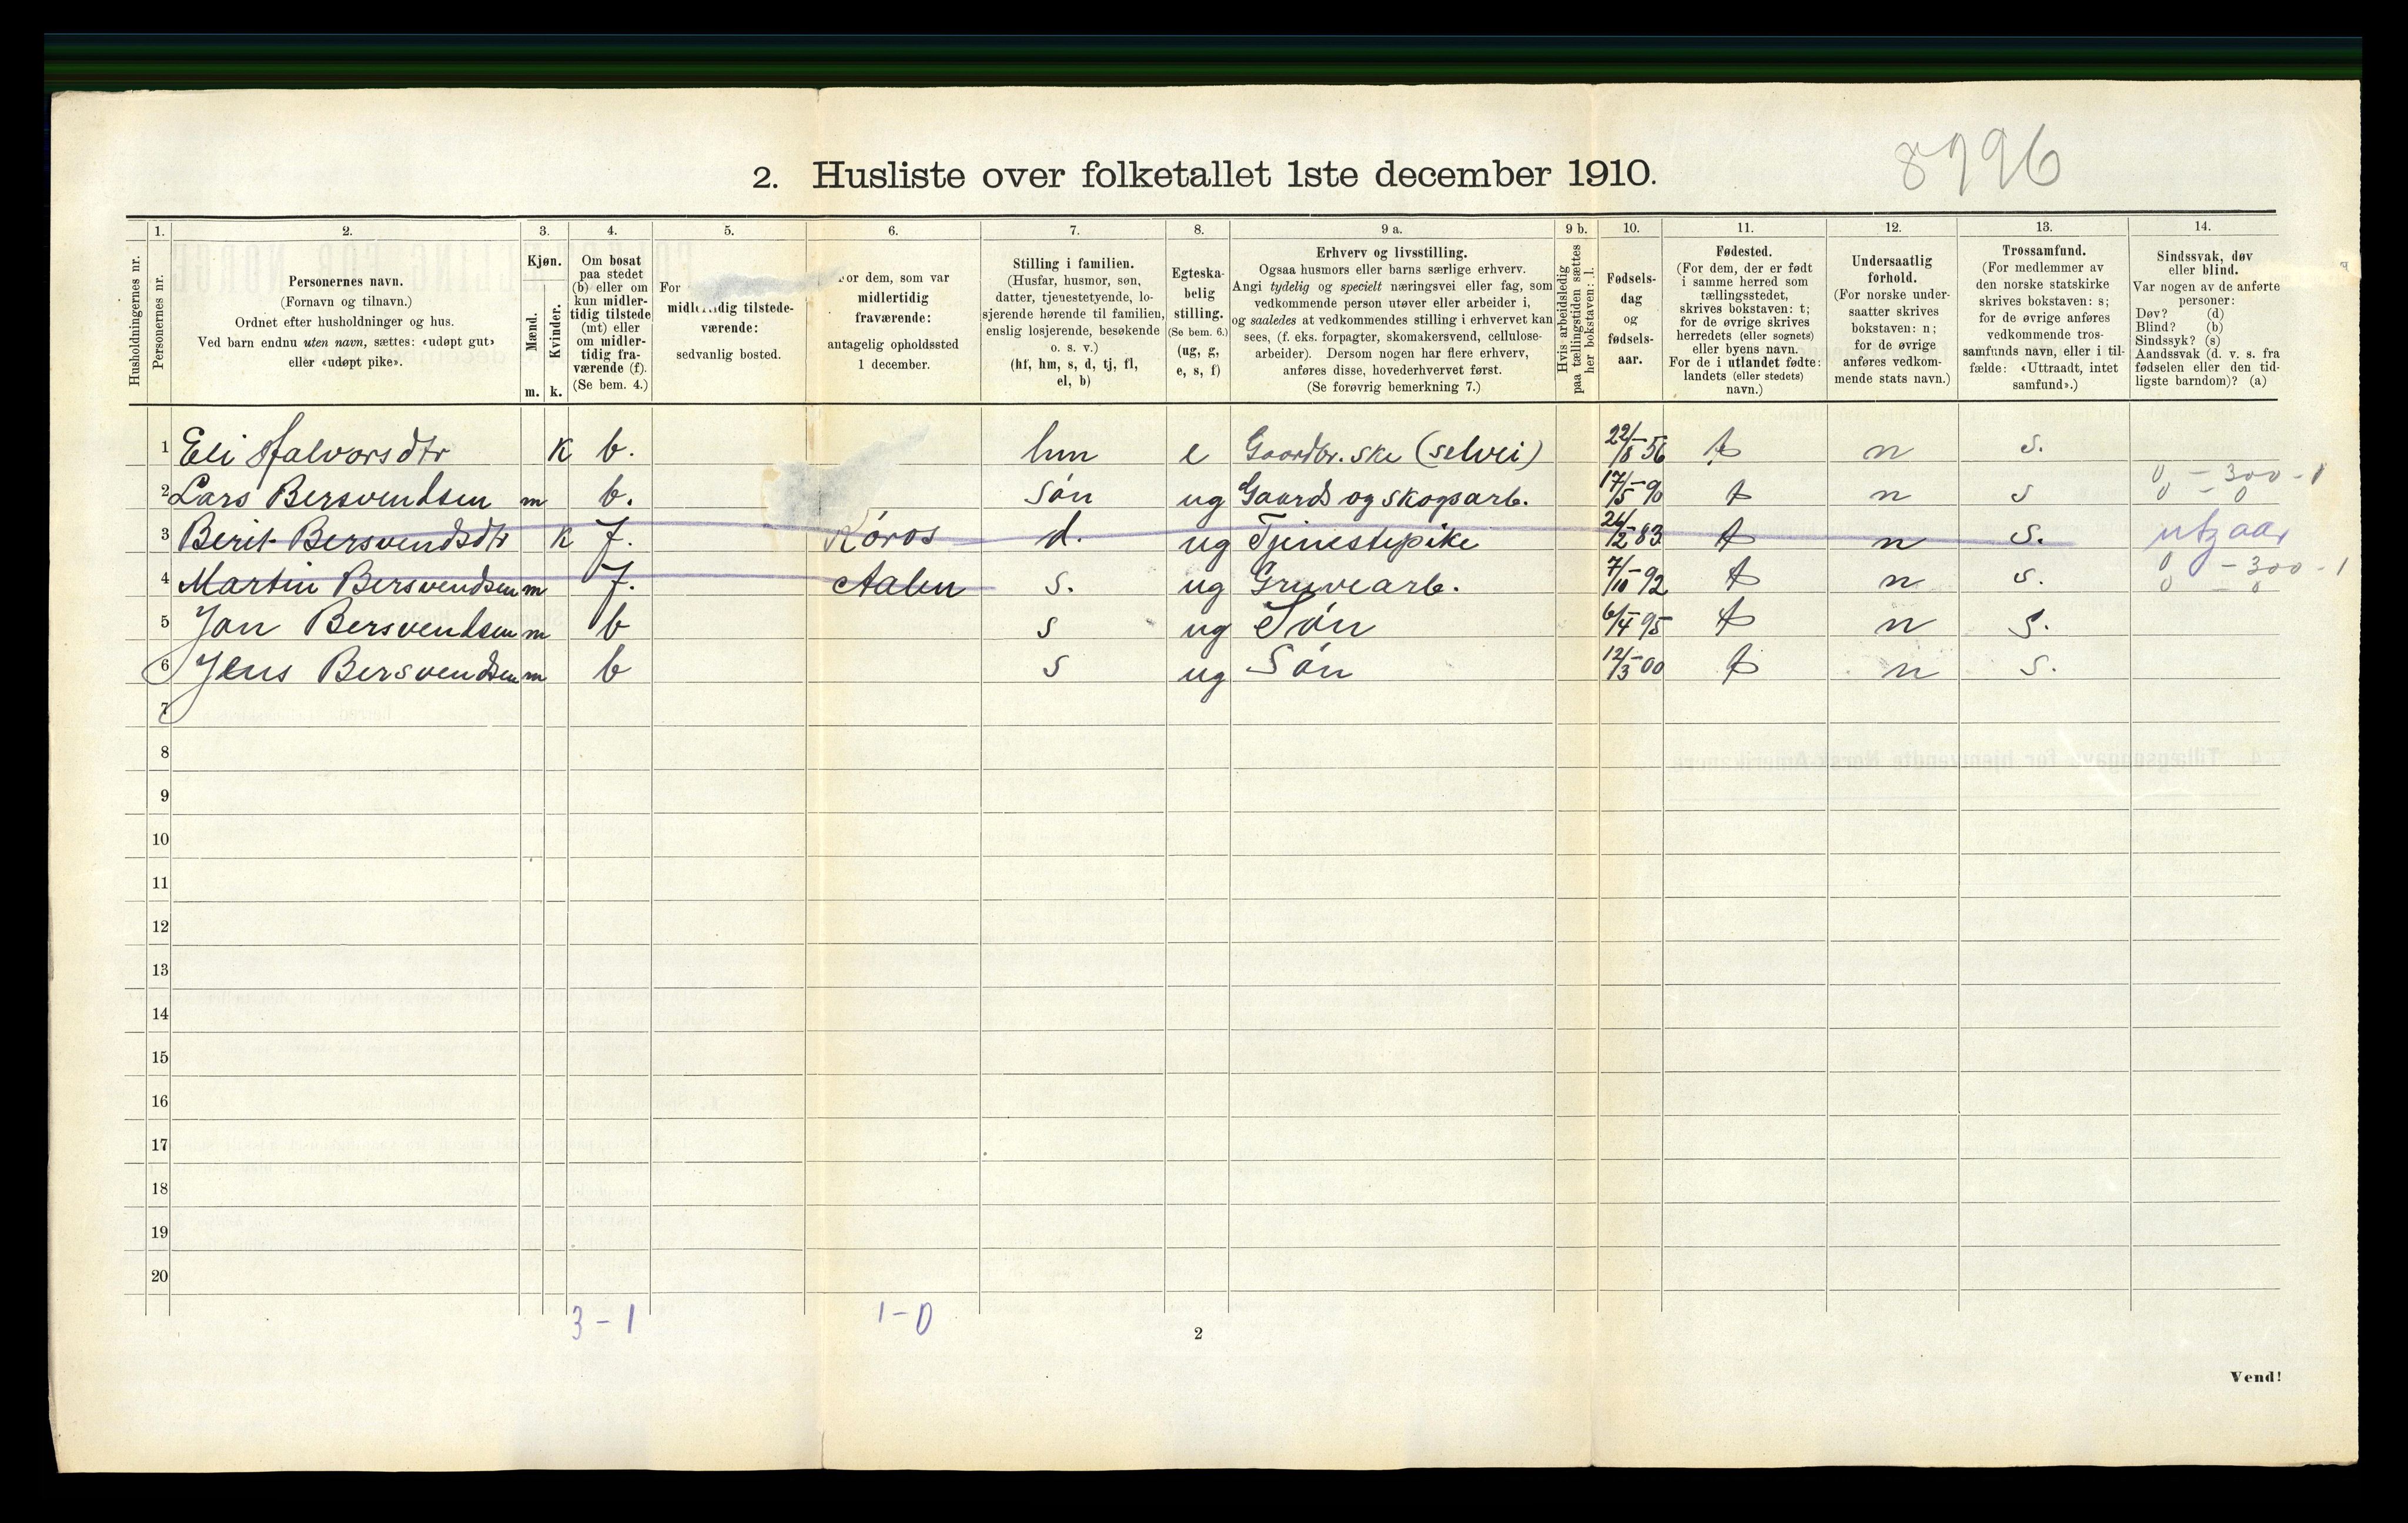 8796
2. Husliste over folketallet 1ste december 1910.
Husholdningernes nr.
1. Personernes nr.
2. Personernes navn.
(Fornavn og tilnavn.)
Ordnet efter husholdninger og hus.
Ved barn endnu uten navn, sættes: «udøpt gut»
eller «udøpt pike».
3. Kjøn.
Mænd. Kvinder.
m. k.
4. Om bosat
paa stedet
(b) eller om
kun midler-
tidig tilstede
(mt) eller
om midler-
tidig fra-
værende (f).
(Se bem. 4.)
5. For
midlertidig tilstede-
værende:
sedvanlig bosted.
6. For dem, som var
midlertidig
fraværende:
antagelig opholdssted
1 december.
7. Stilling i familien.
(Husfar, husmor, søn,
datter, tjenestetyende, lo-
sjerende hørende til familien,
enslig losjerende, besøkende
o. s. v.)
(hf, hm, s, d, tj, fl,
el, b)
8. Egteska-
belig
stilling.
(Se bem. 6.)
(ug, g,
e, s, f)
9 a. Erhverv og livsstilling.
Ogsaa husmors eller barns særlige erhverv.
Angi tydelig og specielt næringsvei eller fag, som
vedkommende person utøver eller arbeider i,
og saaledes at vedkommendes stilling i erhvervet kan
sees, (f. eks. forpagter, skomakersvend, cellulose-
arbeider). Dersom nogen har flere erhverv,
anføres disse, hovederhvervet først.
(Se forøvrig bemerkning 7.)
9 b. Hvis arbeidsledig
paa tællingstiden sættes
her bokstaven: l.
10. Fødsels-
dag
og
fødsels-
aar.
11. Fødested.
(For dem, der er født
i samme herred som
tællingsstedet,
skrives bokstaven: t;
for de øvrige skrives
herredets (eller sognets)
eller byens navn.
For de i utlandet fødte:
landets (eller stedets)
navn.)
12. Undersaatlig
forhold.
(For norske under-
saatter skrives
bokstaven: n;
for de øvrige
anføres vedkom-
mende stats navn.)
13. Trossamfund.
(For medlemmer av
den norske statskirke
skrives bokstaven: s;
for de øvrige anføres
vedkommende tros-
samfunds navn, eller i til-
fælde: «Uttraadt, intet
samfund».)
14. Sindssvak, døv
eller blind.
Var nogen av de anførte
personer:
Døv? (d)
Blind? (b)
Sindssyk? (s)
Aandssvak (d. v. s. fra
fødselen eller den tid-
ligste barndom)? (a)
1 Eli Halvorsdtr k b. hm e Gaardbr.ske (selvei) 22/8-56 t n s.
2 Lars Bersvendsen m b. søn ug Gaards og skogsarb. 17/5-90 t n s 0 - 300 - 1
0 - 0
3 Berit Bersvendsdtr k f. Røros d. ug Tjenestepike 26/2-83 t n s.
4 Martin Bersvendsen m f. Aalen s. ug Gruvearb. 7/10-92 t n s. 0 - 300 - 1
0 - 0
5 Jon Bersvendsen m b s ug Søn 6/4-95 t n s.
6 Jens Bersvendsen m b s ug Søn 12/3-00 t n s.
7
8
9
10
11
12
13
14
15
16
17
18
19
20
3 - 1 1 - 0
2
Vend!